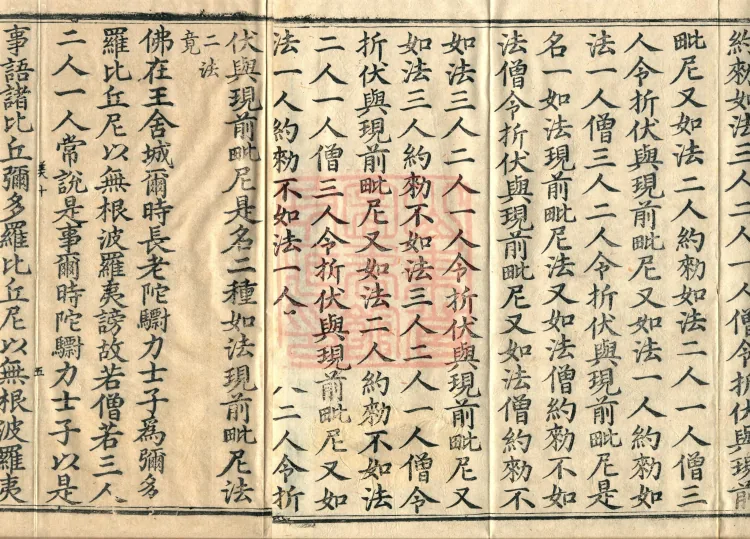 約勑如法三人二人一人僧令折伏與現前
毗尼又如法二人約勑如法二人一人僧三
人令折伏與現前毗尼又如法一人約勑如
法一人僧三人二人令折伏與現前毗尼是
名一如法現前毗尼法又如法僧約勑不如
法僧令折伏與現前毗尼又如法僧約勑不
如法三人二人一人令折伏與現前毗尼又
如法三人約勑不如法三人二人一人僧令
折伏與現前毗尼又如法二人約勑不如法
二人一人僧三人令折伏與現前毗尼又如
法一人約勑不如法一人 人二人令折
伏與現前毗尼是名二種如法現前毗尼法
二法
竟
佛在王舍城爾時長老陀驃力士子為彌多
羅比丘尼以無根波羅夷謗故若僧若三人
二人一人常說是事爾時陀驃力士子以是
十 五
事語諸比丘彌多羅比丘尼以無根波羅夷